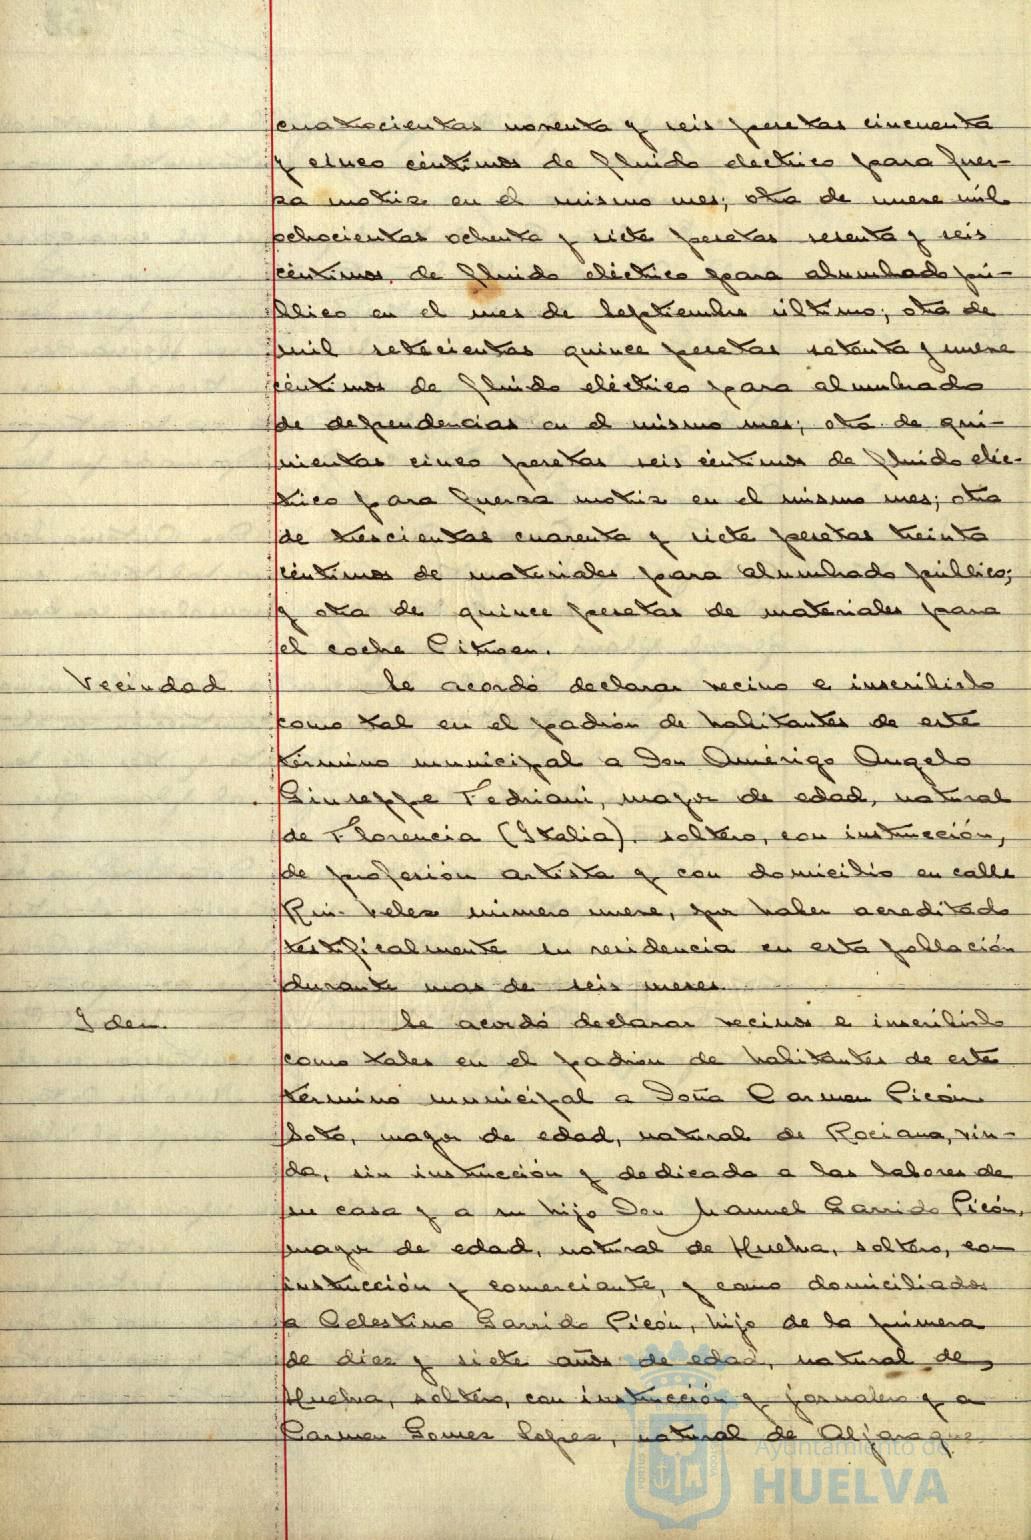 cuatrocientas noventa y seis pesetas cincuenta
y cinco céntimos de fluido electrico para fuer-
za motriz en el mismo mes; otra de nueve mil
ochocientas ochenta y siete pesetas sesenta y seis
céntimos de fluido eléctrico para alumbrado pú-
blico en el mes de Septiembre último; otra de
mil setecientas quince pesetas setenta y nueve
céntimos de fluido eléctrico para alumbrado
de dependencias en el mismo mes; otra de qui-
nientas cinco pesetas seis céntimos de fluido eléc-
trico para fuerza motriz en el mismo mes; otra
de trescientas cuarenta y siete pesetas treinta
céntimos de materiales para alumbrado público;
y otra de quince pesetas de materiales para
el coche Citroen.
Vecindad
Se acordó declarar vecino e inscribirlo
como tal en el padrón de habitantes de este
término municipal a Don Amérigo Angelo
Giuseppe Fedriani, mayor de edad, natural
de Florencia (Italia), soltero, con instrucción,
de profesión artista y con domicilio en calle
Rui-Velez número nueve, por haber acreditado
testificalmente su residencia en esta población
durante mas de seis meses.
Idem.
Se acordó declarar vecinos e inscribirlo
como tales en el padrón de habitantes de este
término municipal a Doña Carmen Picón
Soto, mayor de edad, natural de Rociana, viu-
da, sin instrucción y dedicada a las labores de
su casa y a su hijo Don Manuel Garrido Picón,
mayor de edad, natural de Huelva, soltero, con
instrucción y comerciante, y como domiciliados
a Celestino Garrido Picón, hijo de la primera
de diez y siete años de edad, natural de
Huelva, soltero, con instrucción y jornalero y a
Carmen Gomez Lopez, natural de Aljaraque
Ayuntamiento de
HUELVA